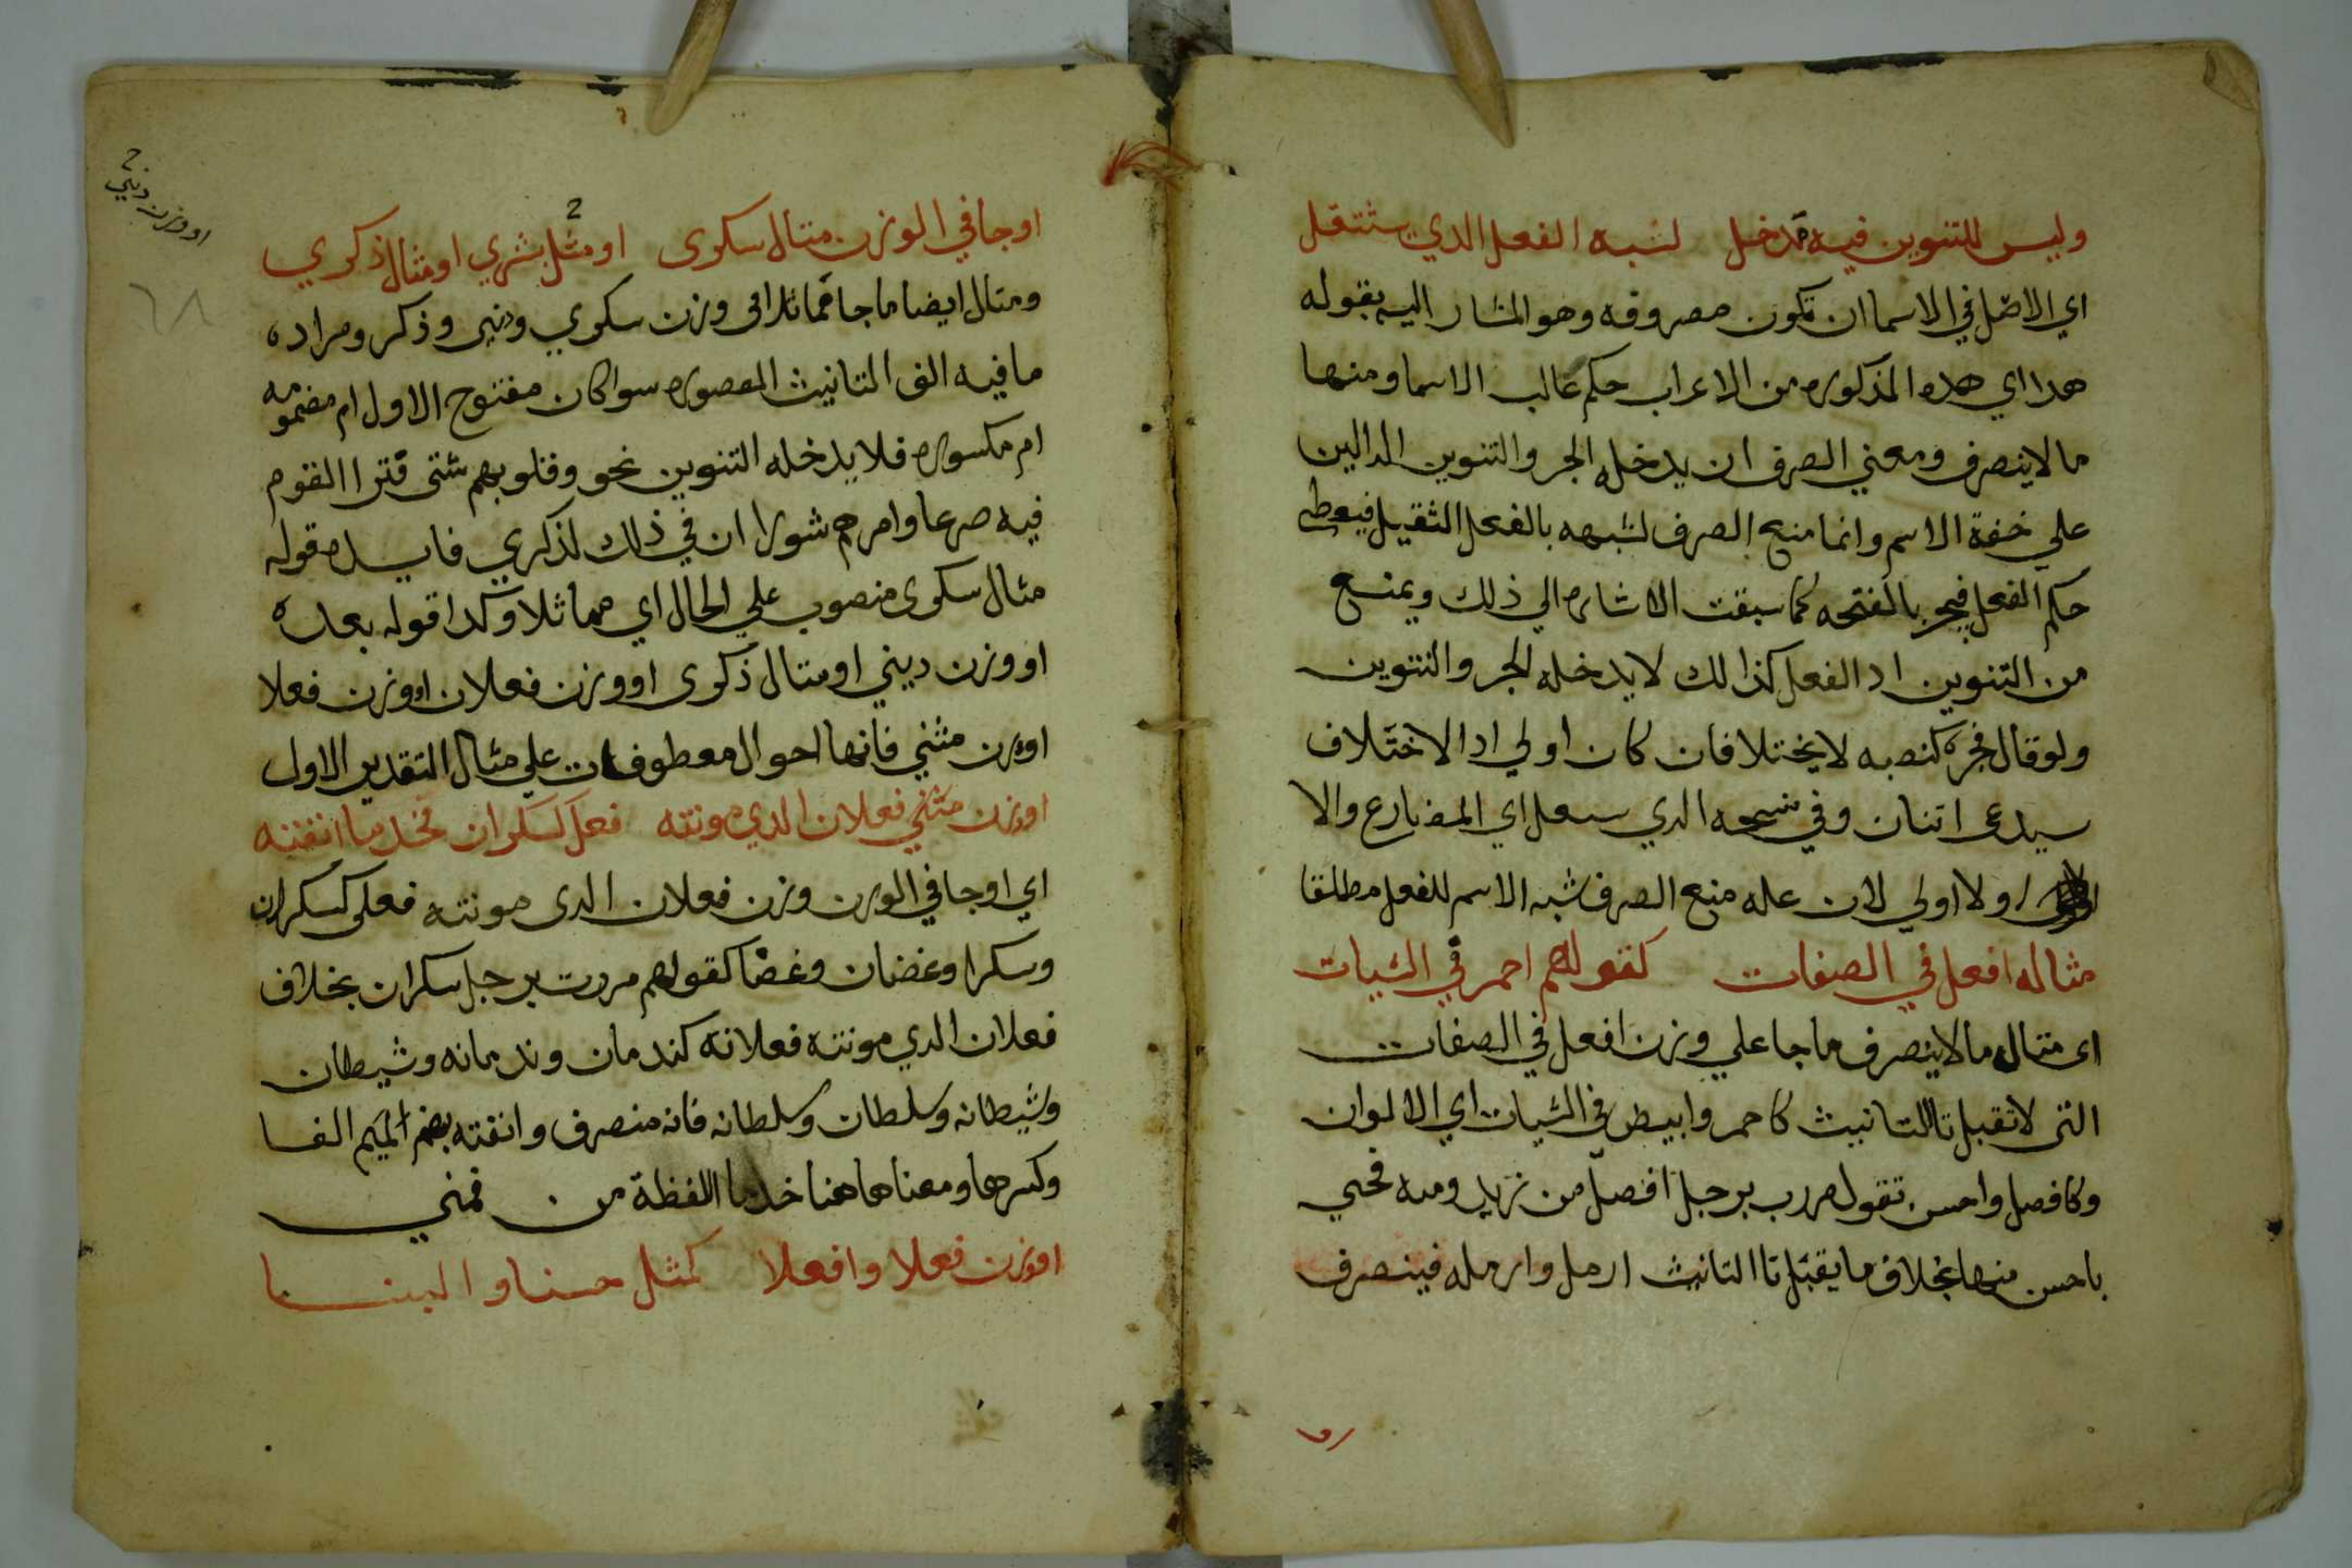 وليس للتنوين فيه مدخل لشبه الفعل الدي يستثقل
اي الاصل في الاسما ان تكون مصروفه وهو المشار اليه بقوله
هدا اي هده المذكوره من الاعراب حكم غالب الاسما ومنها
ما لاينصرف ومعني الصرف ان يدخله الجر والتنوين الدالين
علي خفة الاسم وانما منع الصرف لشبهه بالفعل الثقيل فيعطى
حكم الفعل فيجر بالفتحه كما سبقت الاشاره الي ذلك ويمنع
من التنوين اد الفعل كذالك لايدخله الجر والتنوين
ولوقال فجره كنصبه لايختلافان كان اولي اد الاختلاف
سيدعى اتنان وفي نسخه الدي سعل اي المضارع والا
اولا اولي لان عله منع الصرف شبه الاسم للفعل مطلقا
مثاله افعل في الصفات كقولهم احمر في الشيات
اى متاله ما لاينصرف ما جا علي وزن افعل في الصفات
التى لاتقبل تا التانيث كاحمر وابيض في الشيات اي الالوان
وكافصل واحسن تقول مررب برجل افصل من زيد ومنه فحيي
باحسن منها بخلاف ما يقبل تا التانيث ارمل وارمله فينصرف
اوجا في الوزن متال سكرى او مثل بشري او مثال ذكري
2
ومتال ايضا ما جا مماثلا فى وزن سكري ودنيى وذكر ومراده
ما فيه الف التانيث المعصوره سوا كان مفتوح الاول ام مضمومه
ام مكسوره فلا يدخله التنوين نحو وقلوبهم شتى فترا القوم
فيه صرعا وامرهم شورا ان في ذلك لذكري فايده قوله
مثال سكرى منصوب علي الحال اي مماثلا وكدا قوله بعده
او وزن ديني او متال ذكرى او وزن فعلان او وزن فعلا
اوزن مثني فانها احوال معطوفات علي مثال التقدير الاول
اوزن مثني فعلان الدي مونته فعلى كسكران فخد ما انفثه
اي اوجا في الوزن وزن فعلان الدى مونته فعلى كسكران
وسكرا وغضان وغضا كقولهم مررت برجل سكران بخلاف
فعلان الدي مونته فعلانه كندمان وندمانه وشيطان
وشيطانه وسلطان وسلطانه فانه منصرف وانفته بضم الميم الفا
وكسرها ومعناها هنا خد ما الفظة من فمني
اوزن فعلا وافعلا كمثل حسنا وانبيا
او وزن ديني
٦٨